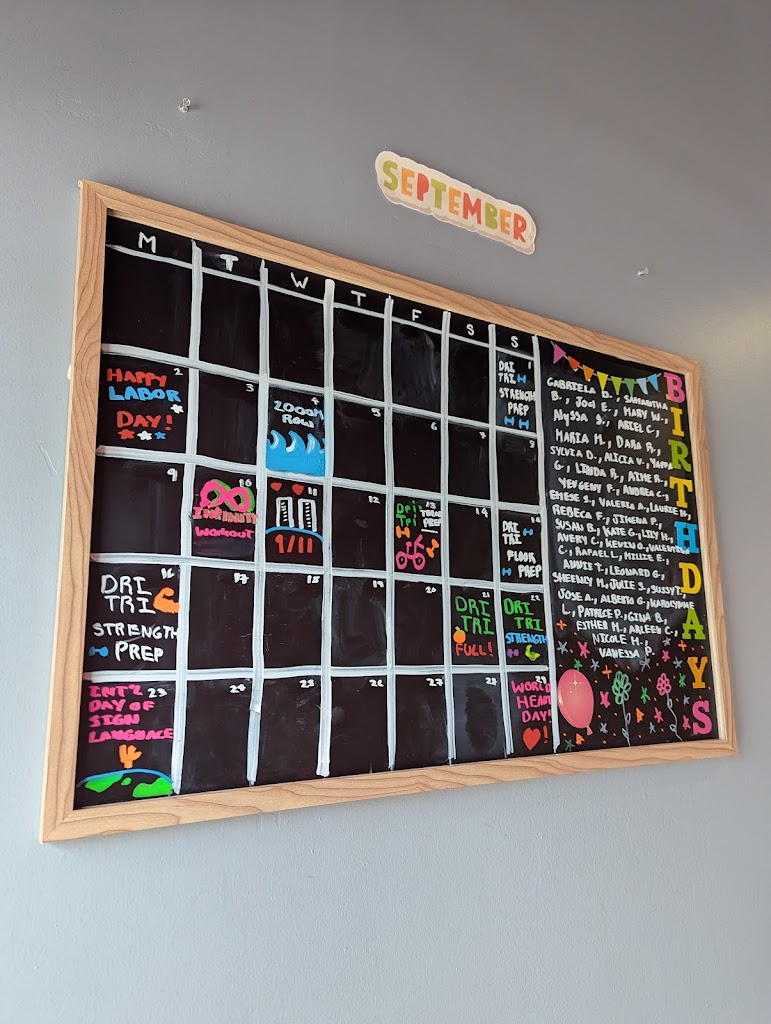 SEPTEMBER
M T W T F S S
1
DRI
TRI
STRENGTH
PREP
2
HAPPY
LABOR
DAY!
3
4
2000M
ROW
5
6
7
8
9
10
INFINITY
WORKOUT
11
9/11
12
13
DRI
TRI
PREP
14
15
DRI
TRI
FLOOR
PREP
16
DRI
TRI
STRENGTH
PREP
17
18
19
20
21
DRI
TRI
FULL!
22
DRI
TRI
STRENGTH
23
INT'L
DAY OF
SIGN
LANGUAGE
26
27
28
29
WORLD
HEART
DAY!
BIRTHDAYS
GABRIELA D., SAMANTHA
B., JOE E., MARY W.,
ALYSSA S., ARIEL C.,
MARIA M., DARA R.,
SYLVIA D., ALICIA V.,
G., LINDA R., AIME R.,
YEVGENY F., ANDREA C.,
EMESE S., VALERIA A., LAURIE H.,
REBECA F., JIMENA P.,
SUSAN B., KATE G., LILY H.,
AVERY C., KEVIN O., VALENTINA
C., RAFAEL L., MILLIE E.,
ANNIE T., LEONARD G.,
SHEENEY M., JULIE S., SUSSY T.,
JOSE A., ALBERTO G.,
L., PATRICE P., GINA B.,
ESTHER H., ARLEEN C.,
NICOLE H.,
VANESSA P.